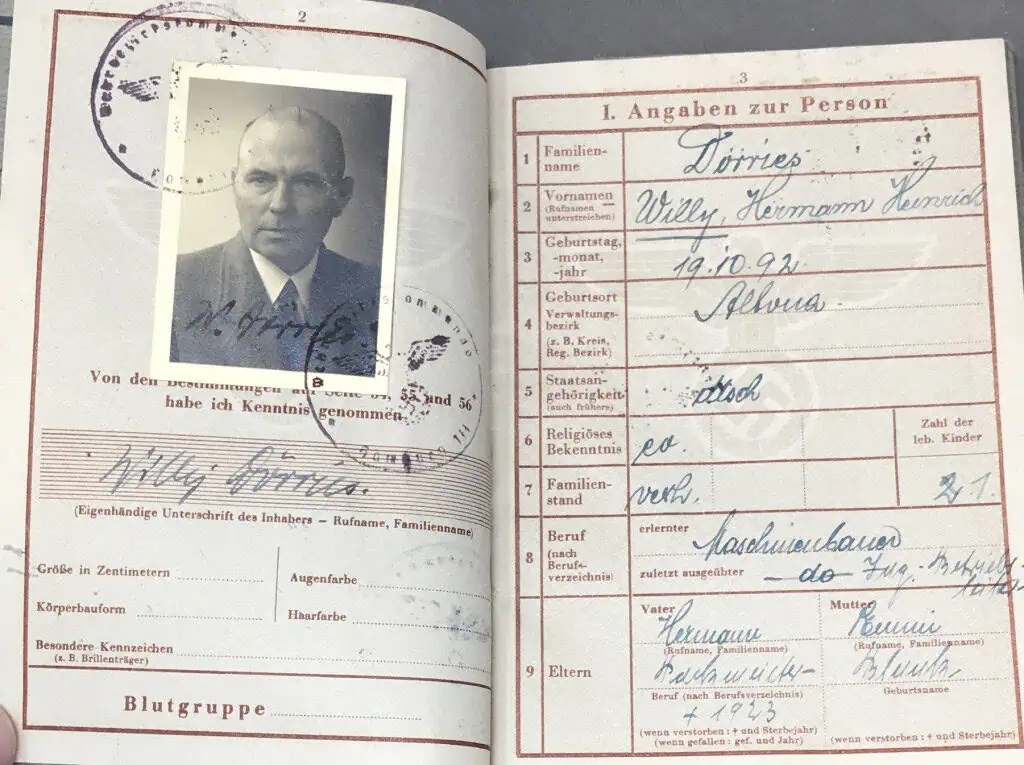 2
Wehrbezirkskomman
W. Dörries
Von den Bestimmungen auf Seite 54, 55 und 56
habe ich Kenntnis genommen.
Willy Dörries.
(Eigenhändige Unterschrift des Inhabers – Rufname, Familienname)
Größe in Zentimetern
Augenfarbe
Körperbauform
Haarfarbe
Besondere Kennzeichen
(z. B. Brillenträger)
Blutgruppe
3
I. Angaben zur Person
1 Familien-
name
Dörries
2 Vornamen
(Rufnamen
unterstreichen)
Willy, Hermann Heinrich
3 Geburtstag,
-monat,
-jahr
19.10.92.
4 Geburtsort
Verwaltungs-
bezirk
(z. B. Kreis,
Reg. Bezirk)
Altona
5 Staatsan-
gehörigkeit
(auch frühere)
dtsch
6 Religiöses
Bekenntnis
ev.
Zahl der
leb. Kinder
7 Familien-
stand
verh.
2 1.
8 Beruf
(nach
Berufs-
verzeichnis)
erlernter
Maschinenbauer
zuletzt ausgeübter
do Ing. Betriebs-
leiter
9 Eltern
Vater
Hermann
(Rufname, Familienname)
Beruf (nach Berufsverzeichnis)
+ 1923
(wenn verstorben: + und Sterbejahr)
(wenn gefallen: gef. und Jahr)
Mutter
(Rufname, Familienname)
Geburtsname
(wenn verstorben: + und Sterbejahr)